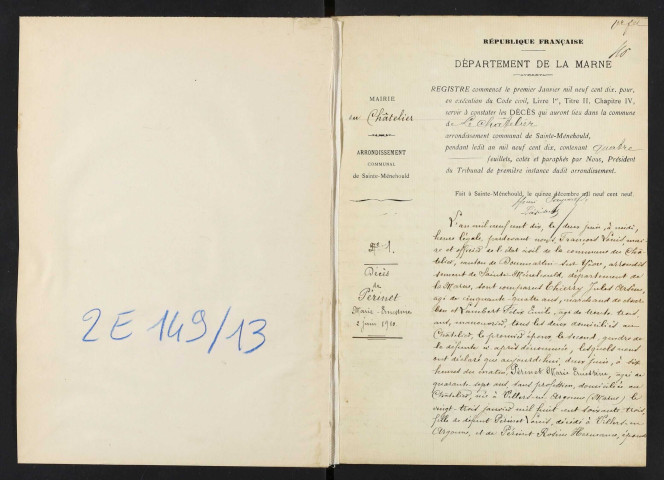 2 E 149/13
RÉPUBLIQUE FRANÇAISE
DÉPARTEMENT DE LA MARNE
MAIRIE
du Châtelier
ARRONDISSEMENT
COMMUNAL
de Sainte-Ménehould
REGISTRE commencé le premier Janvier mil neuf cent dix, pour,
en exécution du Code civil, Livre Ier, Titre II, Chapitre IV,
servir à constater les DÉCÈS qui auront lieu dans la commune
de Le Châtelier
arrondissement communal de Sainte-Ménehould,
pendant ledit an mil neuf cent dix, contenant quatre
feuillets, cotés et paraphés par Nous, Président
du Tribunal de première instance dudit arrondissement.
Fait à Sainte-Ménehould, le quinze décembre mil neuf cent neuf.
No 1.
Décès
de
Périnet
Marie
2 Juin 1910
L'an mil neuf cent dix, le deux juin, à midi,
heure légale, pardevant nous François Louis, mai-
re et officier de l'état civil de la commune du Châ-
telier, canton de Dommartin-sur-Yèvre, arrondis-
sement de Sainte-Ménehould, département de
la Marne, sont comparus Thierry Jules
âgé de cinquante quatre ans, marchand de
et Lambert Emile, âgé de trente trois
ans, tous les deux domiciliés au
Châtelier, le premier époux, le second gendre de
la défunte ci-après dénommée, lesquels nous
ont déclaré que aujourd'hui, deux juin, à six
heures du matin, Périnet Marie, âgée de
quarante sept ans, sans profession, domiciliée au
Châtelier, née à Villers-en-Argonne (Marne) le
vingt trois janvier mil huit cent soixante trois,
fille de défunt Périnet Louis, décédé à Villers-en-
Argonne, et de Hermance, épouse